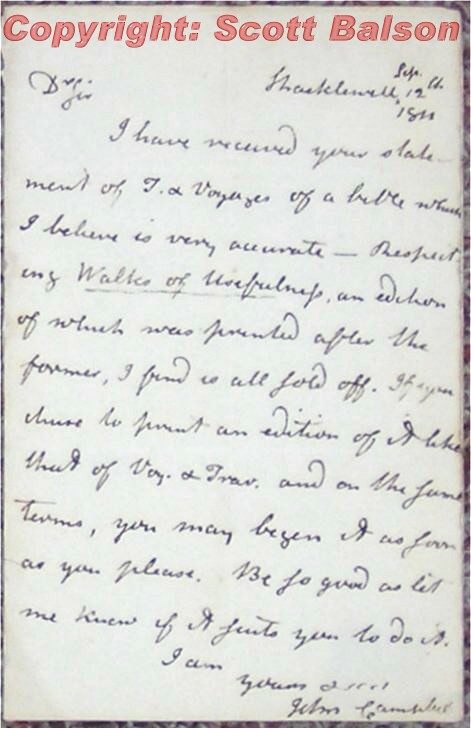 Copyright: Scott Balson
Dear Sir
Shacklewell, Sep. 12th
1811
I have received your state-
ment of T. & Voyages of a bible which
I believe is very accurate — Respect
ing Walks of Usefulness, an edition
of which was printed after the
former, I find is all sold off. If you
chuse to print an edition of it like
that of Voy. & Trav. and on the same
terms, you may begin it as soon
as you please. Be so good as let
me know if it suits you to do it.
I am
yours
John Campbell